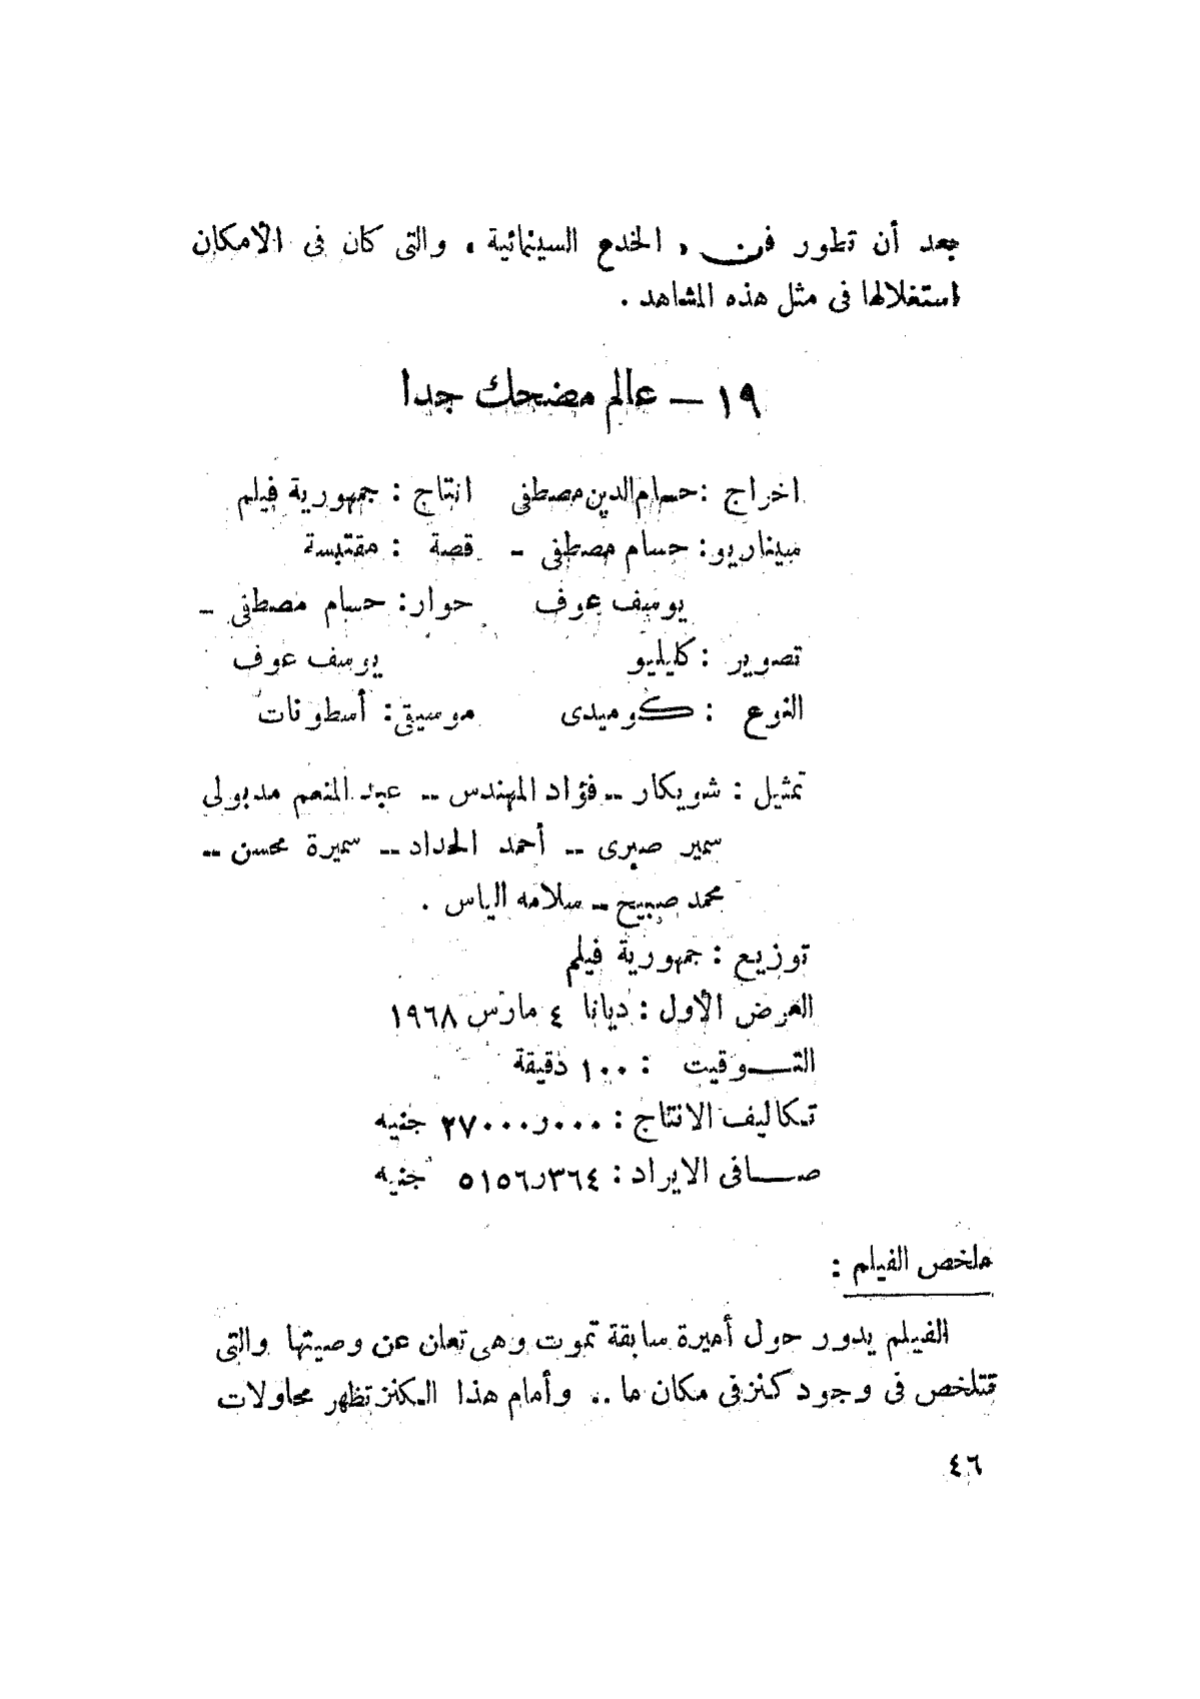 بعد أن تطور فن « الخدع السينمائية » والتى كان فى الامكان
استغلالها فى مثل هذه المشاهد .
١٩ — عالم مضحك جدا
اخراج : حسام الدين مصطفى انتاج : جمهورية فيلم
سيناريو : حسام مصطفى - قصة : مقتبسة
يوسف عوف حوار : حسام مصطفى -
تصوير : كليليو يوسف عوف
النوع : كوميدى موسيقى : أسطوانات
تمثيل : شويكار – فؤاد المهندس – عبد المنعم مدبولى
سمير صبرى – أحمد الحداد – سميرة محسن –
محمد صبيح – سلامه الياس .
توزيع : جمهورية فيلم
العرض الأول : ديانا ٤ مارس ١٩٦٨
التـــوقيت : ١٠٠ دقيقة
تكاليف الانتاج : ٢٧٠٠٠ر٠٠٠ جنيه
صـــافى الايراد : ٥١٥٦ر٣٦٤ جنيه
ملخص الفيلم :
الفيلم يدور حول أميرة سابقة تموت وهى تعلن عن وصيتها والتى
تتلخص فى وجود كنز فى مكان ما .. وأمام هذا الكنز تظهر محاولات
٤٦